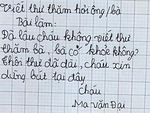 Viết thư thăm hỏi ông/bà
Bài làm:
Đã lâu cháu không viết thư
thăm bà, bà có khỏe không?
Thôn thư đã dài, cháu xin
dừng bút tại đây
Cháu
Ma Văn Đại